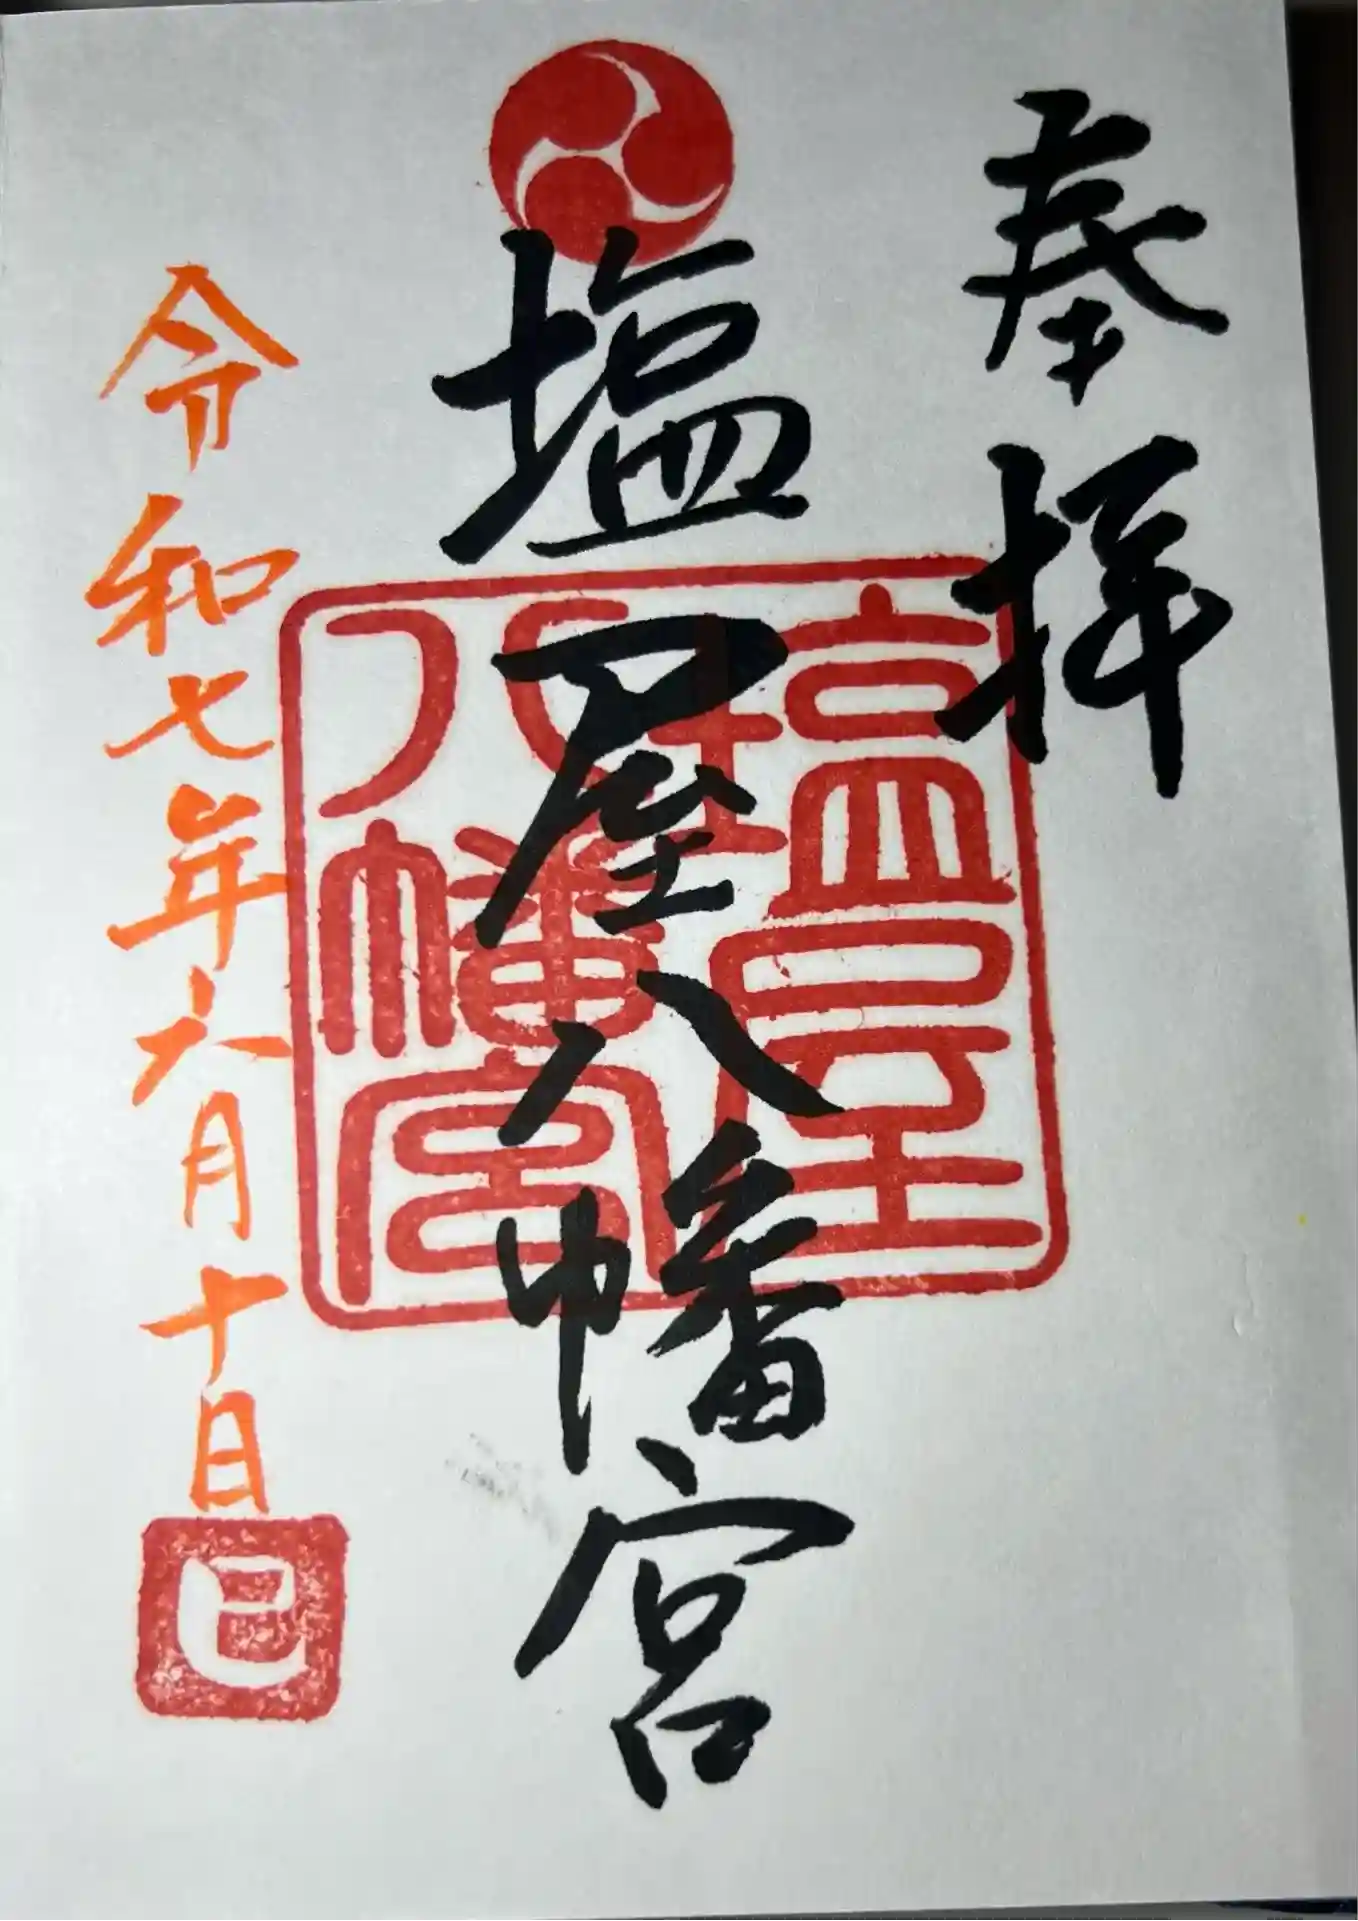 奉拝
塩屋八幡宮
塩屋八幡宮
令和七年六月十日
巳